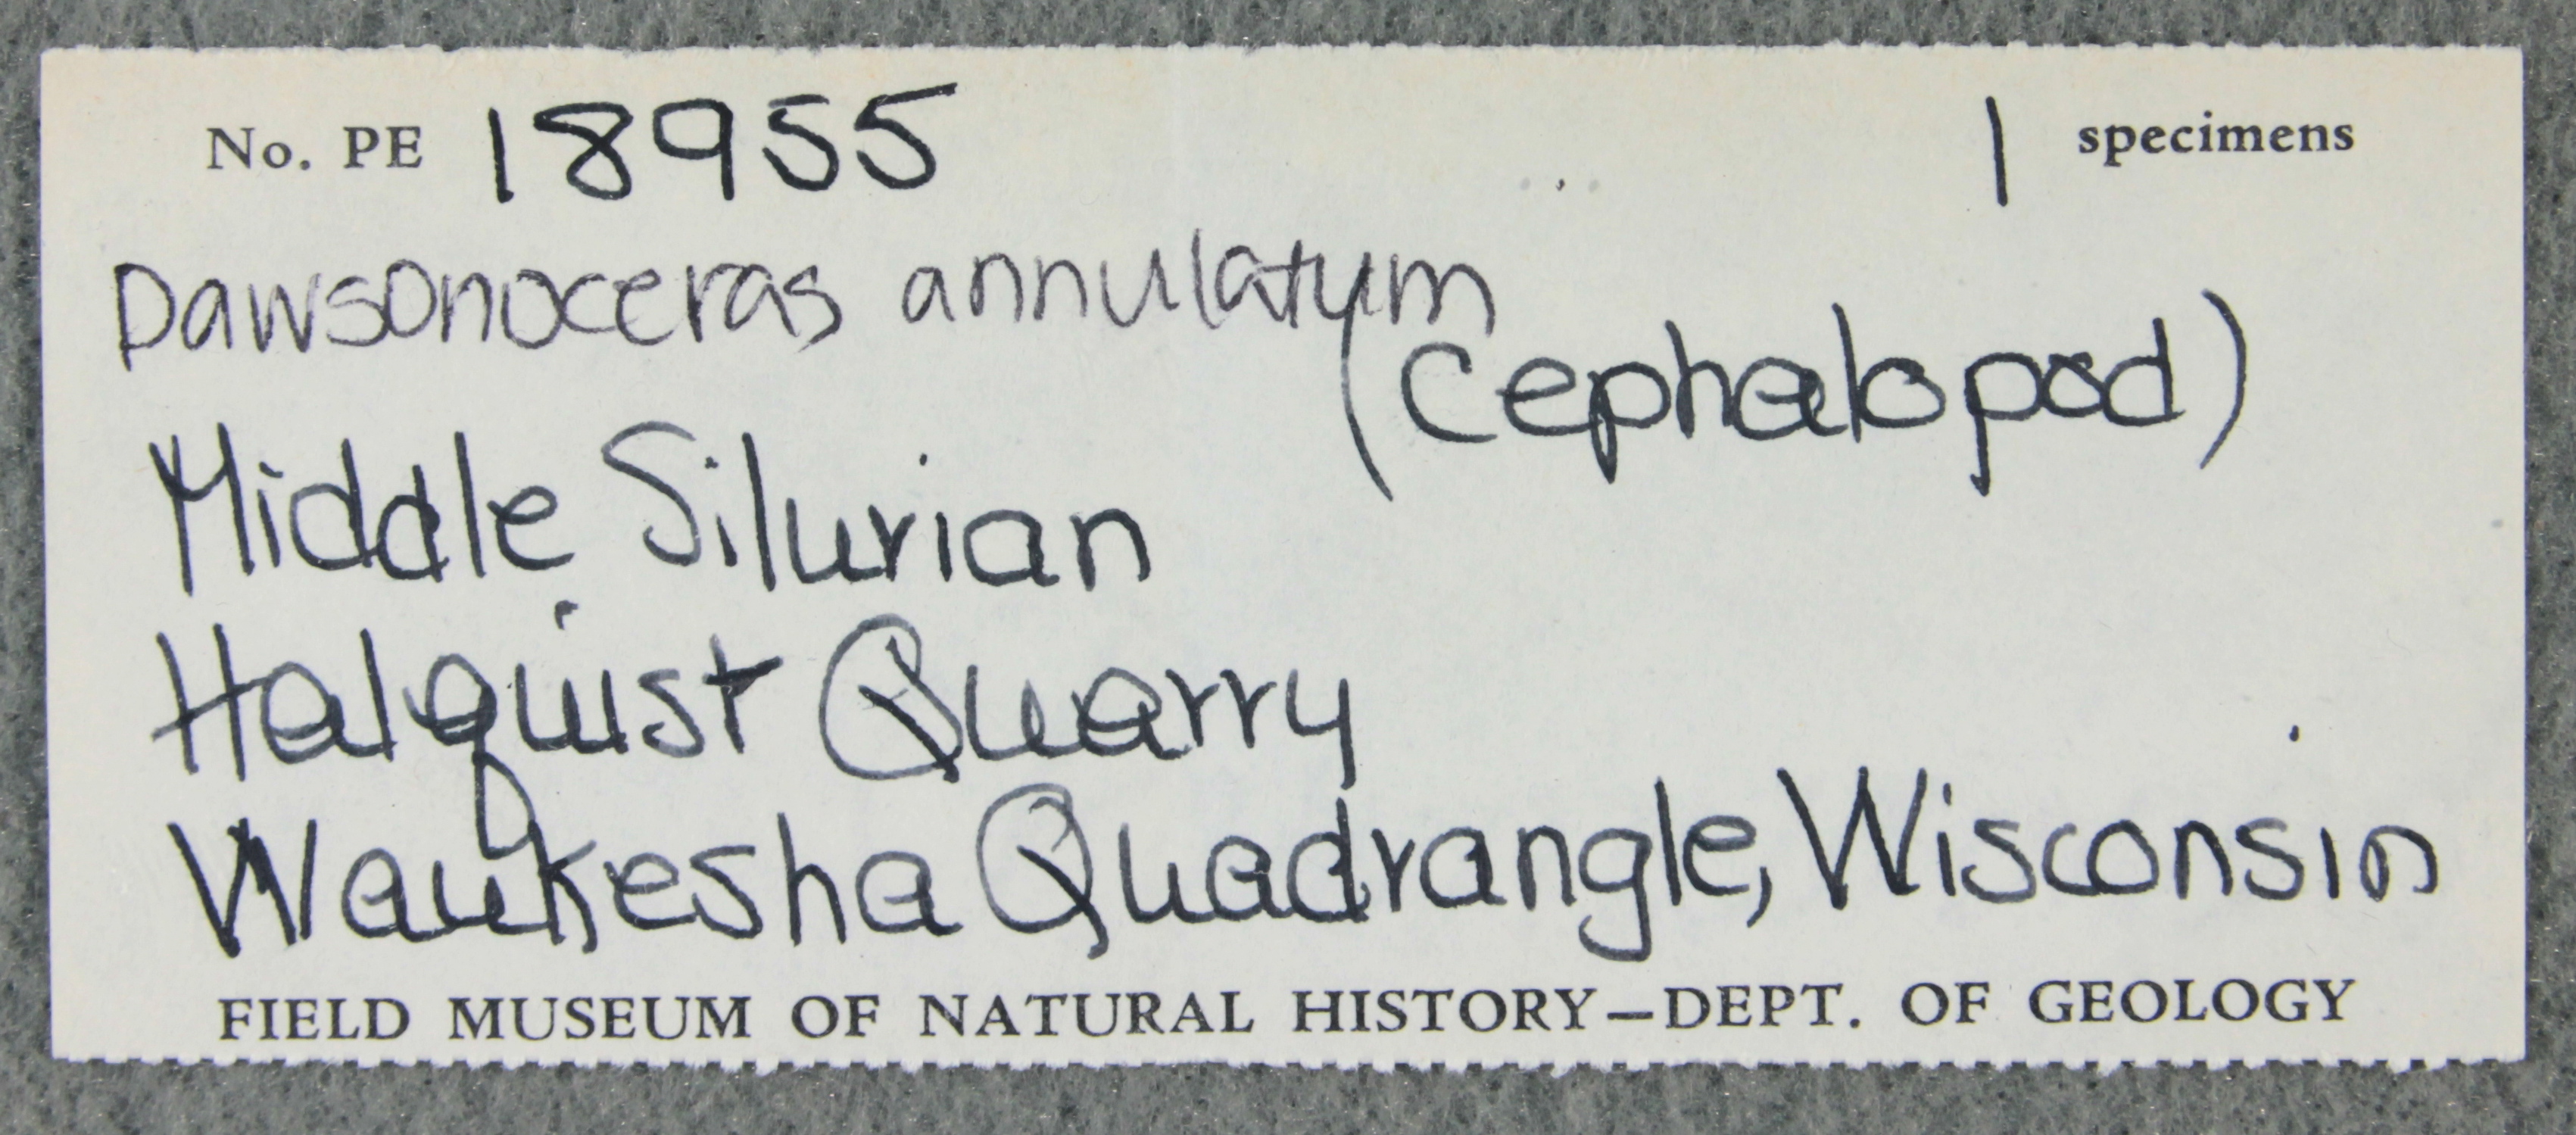 No. PE 18955 1 specimens
Dawsonoceras annulatum
(Cephalopod)
Middle Silurian
Halquist Quarry
Waukesha Quadrangle, Wisconsin
FIELD MUSEUM OF NATURAL HISTORY—DEPT. OF GEOLOGY